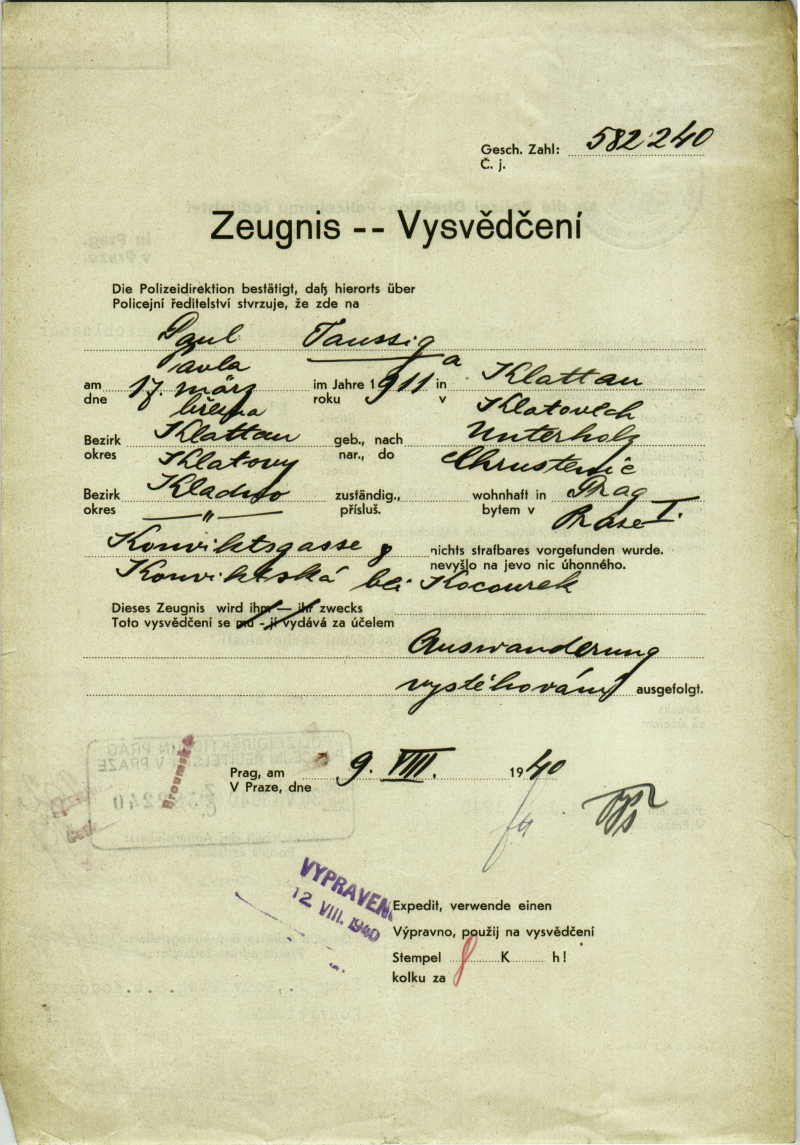 Gesch. Zahl: 582240
Č. j.
Zeugnis -- Vysvědčení
Die Polizeidirektion bestätigt, daß hierorts über
Policejní ředitelství stvrzuje, že zde na
Paul Taussig
Pavla a
am 17. märz im Jahre 1911 in Klattau
dne března roku v Klatovech
Bezirk Klattau geb., nach Unterholz
okres Klatovy nar., do Chrustenic
Bezirk Kladno zuständig., wohnhaft in Prag
okres — " — přísluš. bytem v Praze I.
Konviktsgasse 8 nichts strafbares vorgefunden wurde.
nevyšlo na jevo nic úhonného.
Konviktská bei Kocourek
Dieses Zeugnis wird ihm — ihr zwecks
Toto vysvědčení se mu - jí vydává za účelem
Auswanderung
vystěhování ausgefolgt.
Prag, am 9. VIII. 1940
V Praze, dne
Broumská
VYPRAVENO
12 VIII. 1940
Expedit, verwende einen
Výpravno, použij na vysvědčení
Stempel 8 K h!
kolku za